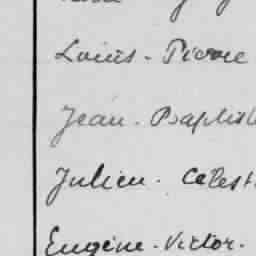 Louis - Pierre
Jean - Baptist
Julien - Celest
Eugène - Victor -